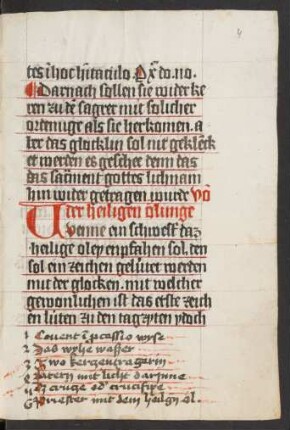 4
tes ī hoc hītaculo. Pχ̄ do. no.
Darnach sollen sie wider ke
ren zu dē sagrer mit solicher
ordenūge als sie herkomen. a
ber das glocklin sol nit geklēck
et werden es geschee denn das
das sac̄ment gottes lichnam
hin wider getragen wurde Vō
der heiligen ölunge
Wenne ein schwest͛ daz
heilige oley enpfahen sol. den
sol ein zeichen gelütet werden
mit der glocken. mit welcher
gewonlichen ist das erste zeich
en lüten zu den tagzyten ydoch
1 Covent ī ꝓcessio wyse
2 Das wyhe wasser
3 Zwo kerczentragerin
4 latern mit licht dar Inne
5 Daz cruge od͛ crucifixe
6 Priester mit dem heilgē öl.